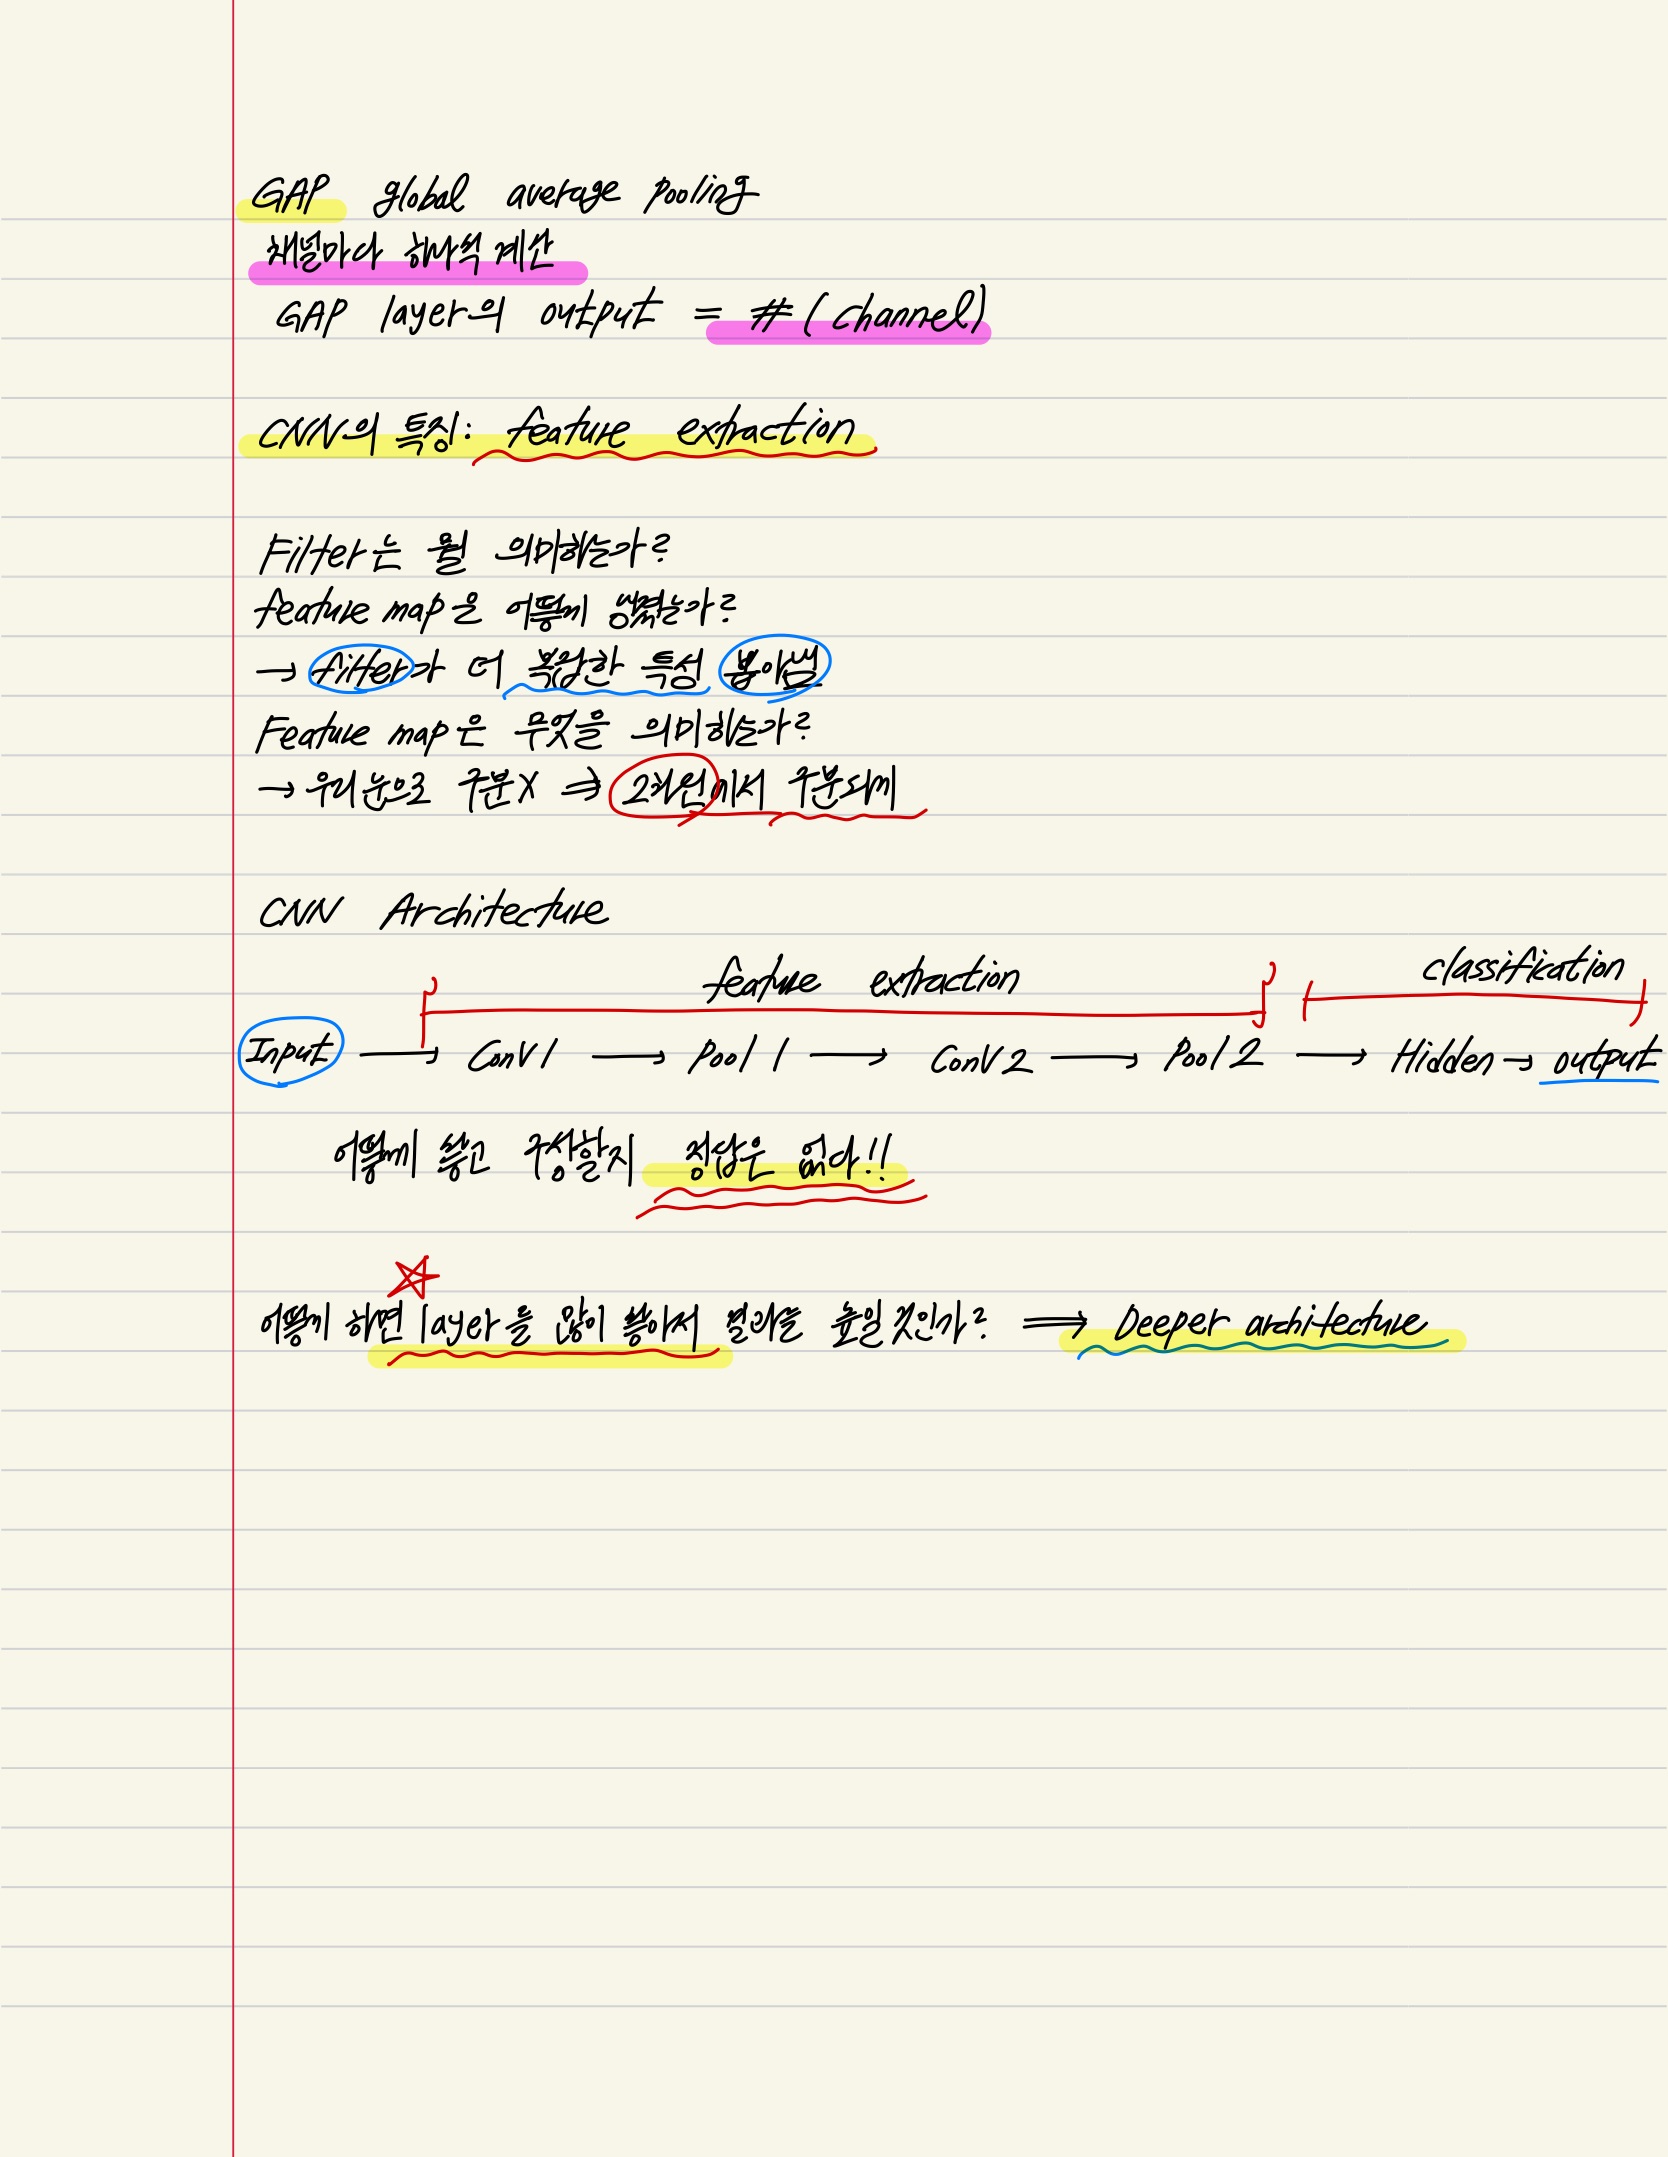 GAP global average pooling
채널마다 하나씩 계산
GAP layer의 output = #(channel)
CNN의 특징: feature extraction
Filter는 뭘 의미하는가?
feature map은 어떻게 생겼는가?
→ filter가 더 복잡한 특성 뽑아냄
Feature map은 무엇을 의미하는가?
→ 우리 눈으로 구분X ⇒ 2차원에서 구분되게
CNN Architecture
feature extraction classification
Input → Conv1 → Pool1 → Conv2 → Pool2 → Hidden → output
어떻게 쌓고 구성할지 정답은 없다!!
어떻게 하면 layer를 많이 쌓아서 결과를 높일 것인가? ⇒ Deeper architecture